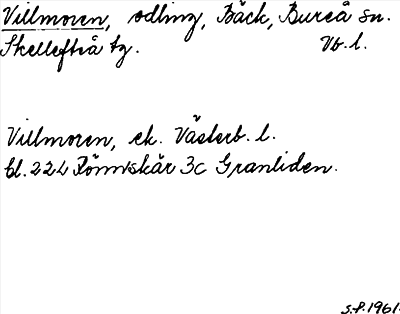 Villmoren, odling, Bäck, Bureå sn.
Skellefteå tg. Vb.l.
Villmoren, ek. Västerb. l.
bl. 22L Rönnskär 3c Granliden.
S.P. 1961.